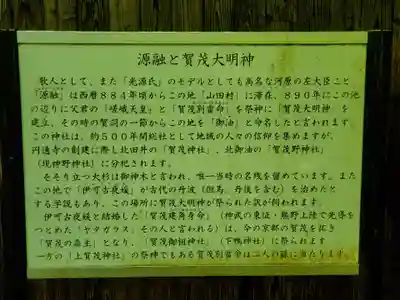 源融と賀茂大明神
歌人として、また「光源氏」のモデルとしても高名な河原の左大臣こと
「源融」は西暦884年頃からこの地「山田村」に滞在、890年にこの池
の辺りに父君の「嵯峨天皇」と「賀茂別雷命」を祭神に「賀茂大明神」を
建立、その時の賀詞の一節からこの地を「御油」と命名したと言われます。
この神社は、約500年間総社として地域の人々の信仰を集めますが、
円通寺の創建に際し北田井の「賀茂神社」、北御油の「賀茂野神社」
(現神野神社)に分祀されます。
そそり立つ大杉は御神木と言われ、唯一当時の名残を留めています。また
この地で「伊可古夜媛」が古代の丹波(但馬、丹後を含む)を治めたと
する学説もあり、この場所に賀茂大明神が祭られた訳が伺われます。
伊可古夜媛と結婚した「賀茂建角身命」(神武の東征・熊野上陸で先導を
つとめた「ヤタガラス」その人と言われる)は、今の京都の賀茂を拓き
「賀茂の県主」となり、「賀茂御祖神社」(下鴨神社)に祭られます
一方の「上賀茂神社」の祭神でもある賀茂別雷命は二人の孫に当たります。